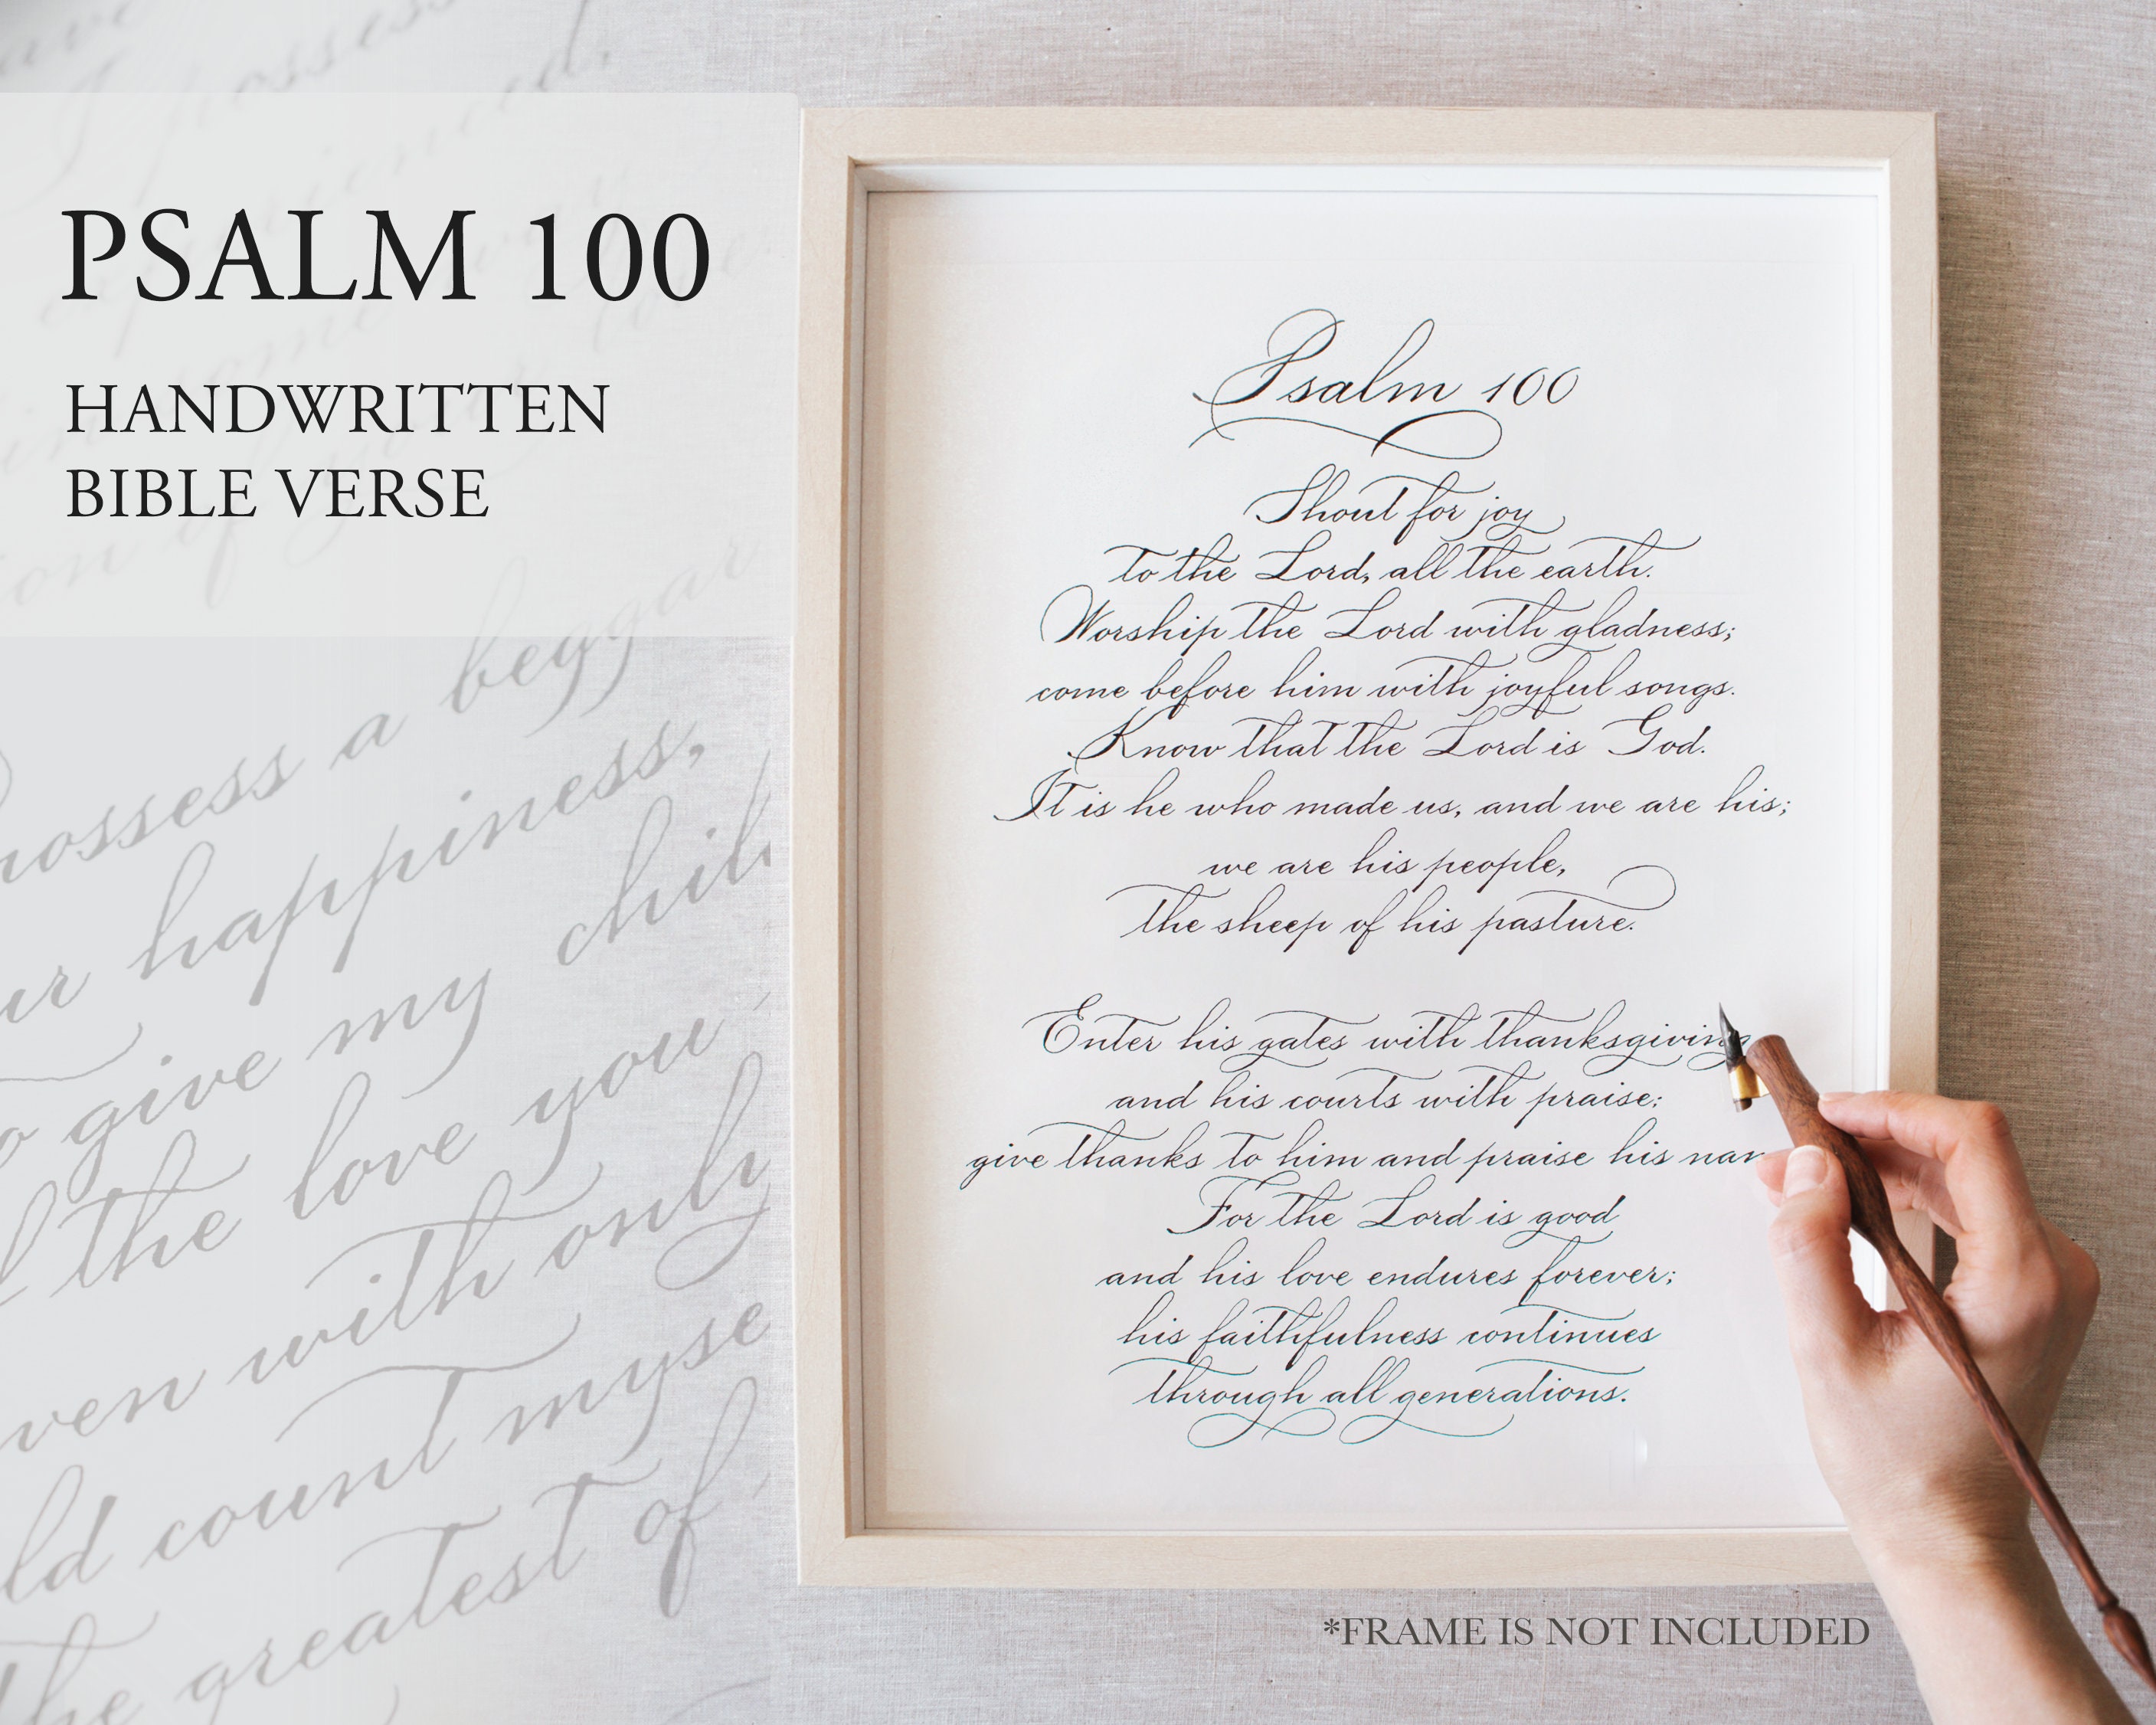 PSALM 100
HANDWRITTEN
BIBLE VERSE
possess a beggar
happiness,
give my
the love you
with only
count
greatest of
Psalm 100
Shout for joy
to the Lord, all the earth.
Worship the Lord with gladness;
come before him with joyful songs.
Know that the Lord is God.
It is he who made us, and we are his;
we are his people,
the sheep of his pasture.
Enter his gates with thanksgiving
and his courts with praise;
give thanks to him and praise his
For the Lord is good
and his love endures forever;
his faithfulness continues
through all generations.
*FRAME IS NOT INCLUDED